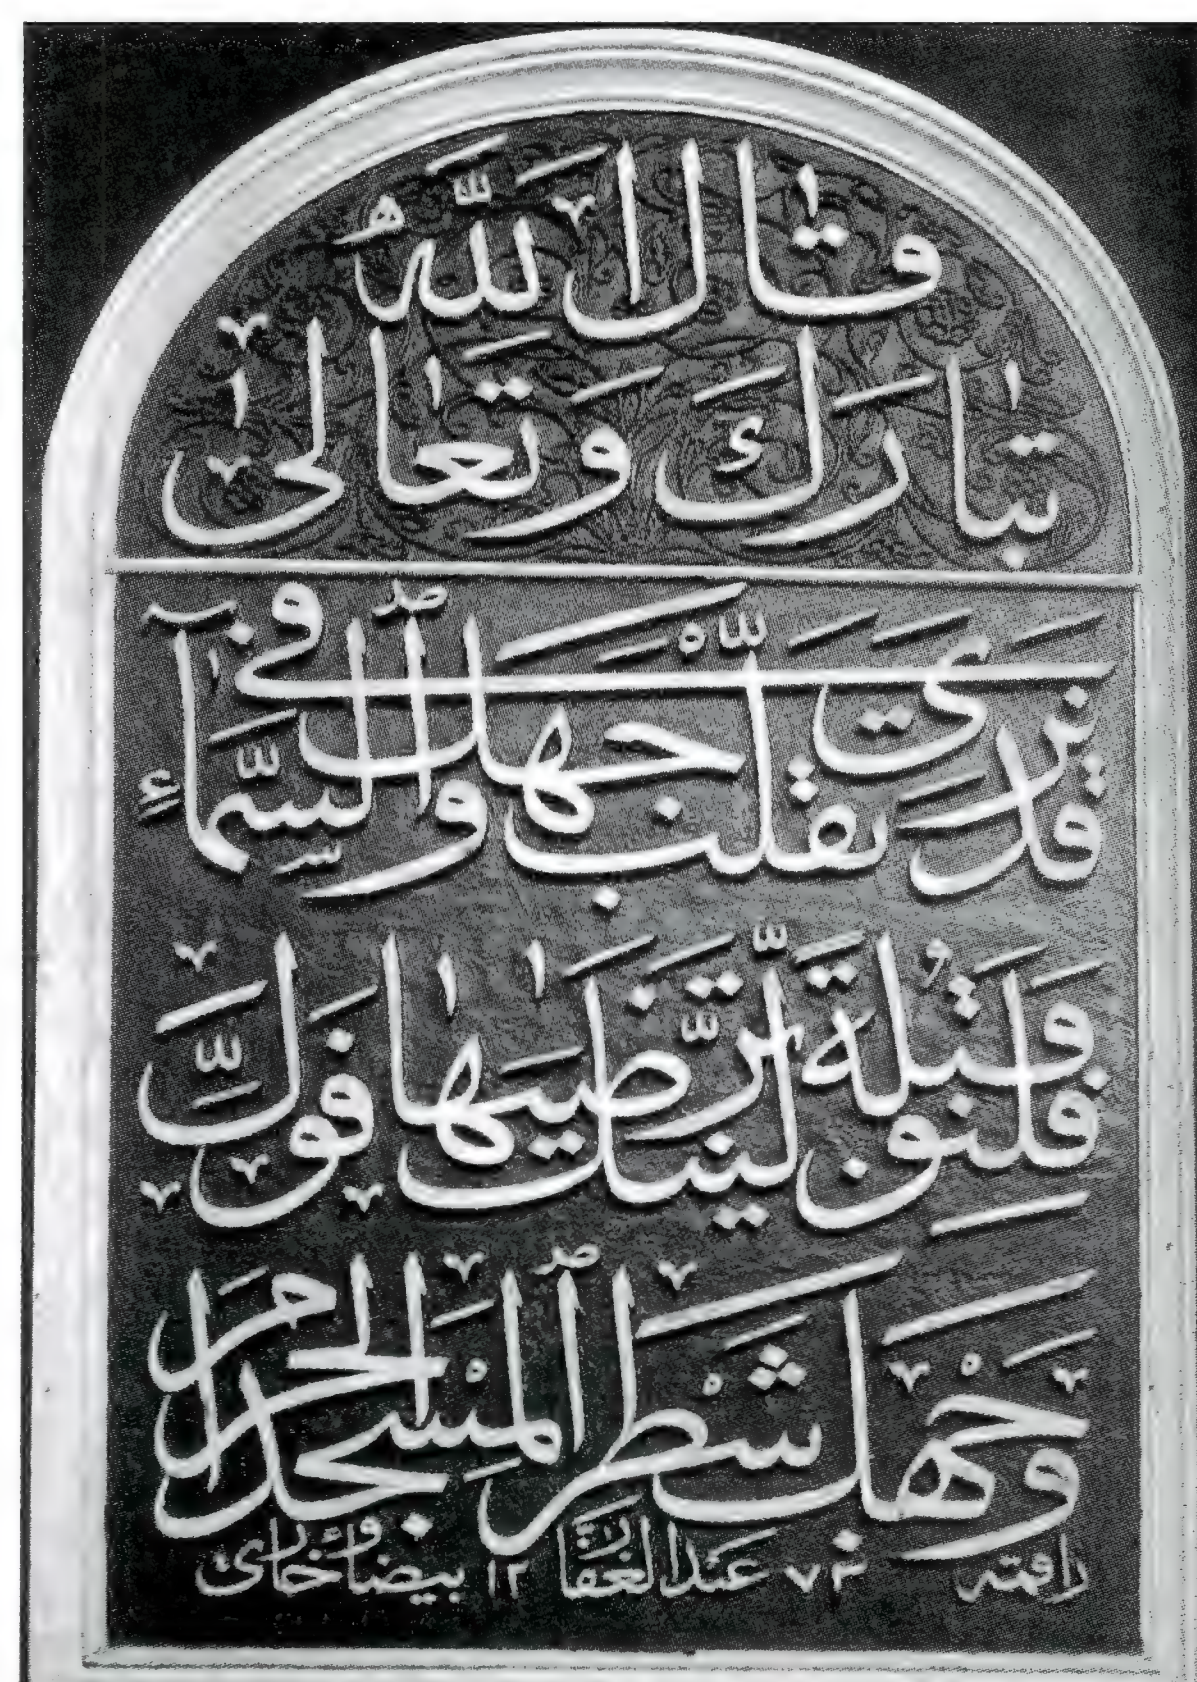 قال الله
تبارك وتعالى
قد نرى تقلب وجهك في السماء
فلنولينك قبلة ترضيها فول
وجهك شطر المسجد الحرام
راقمه عبد الغفار بيضاوي